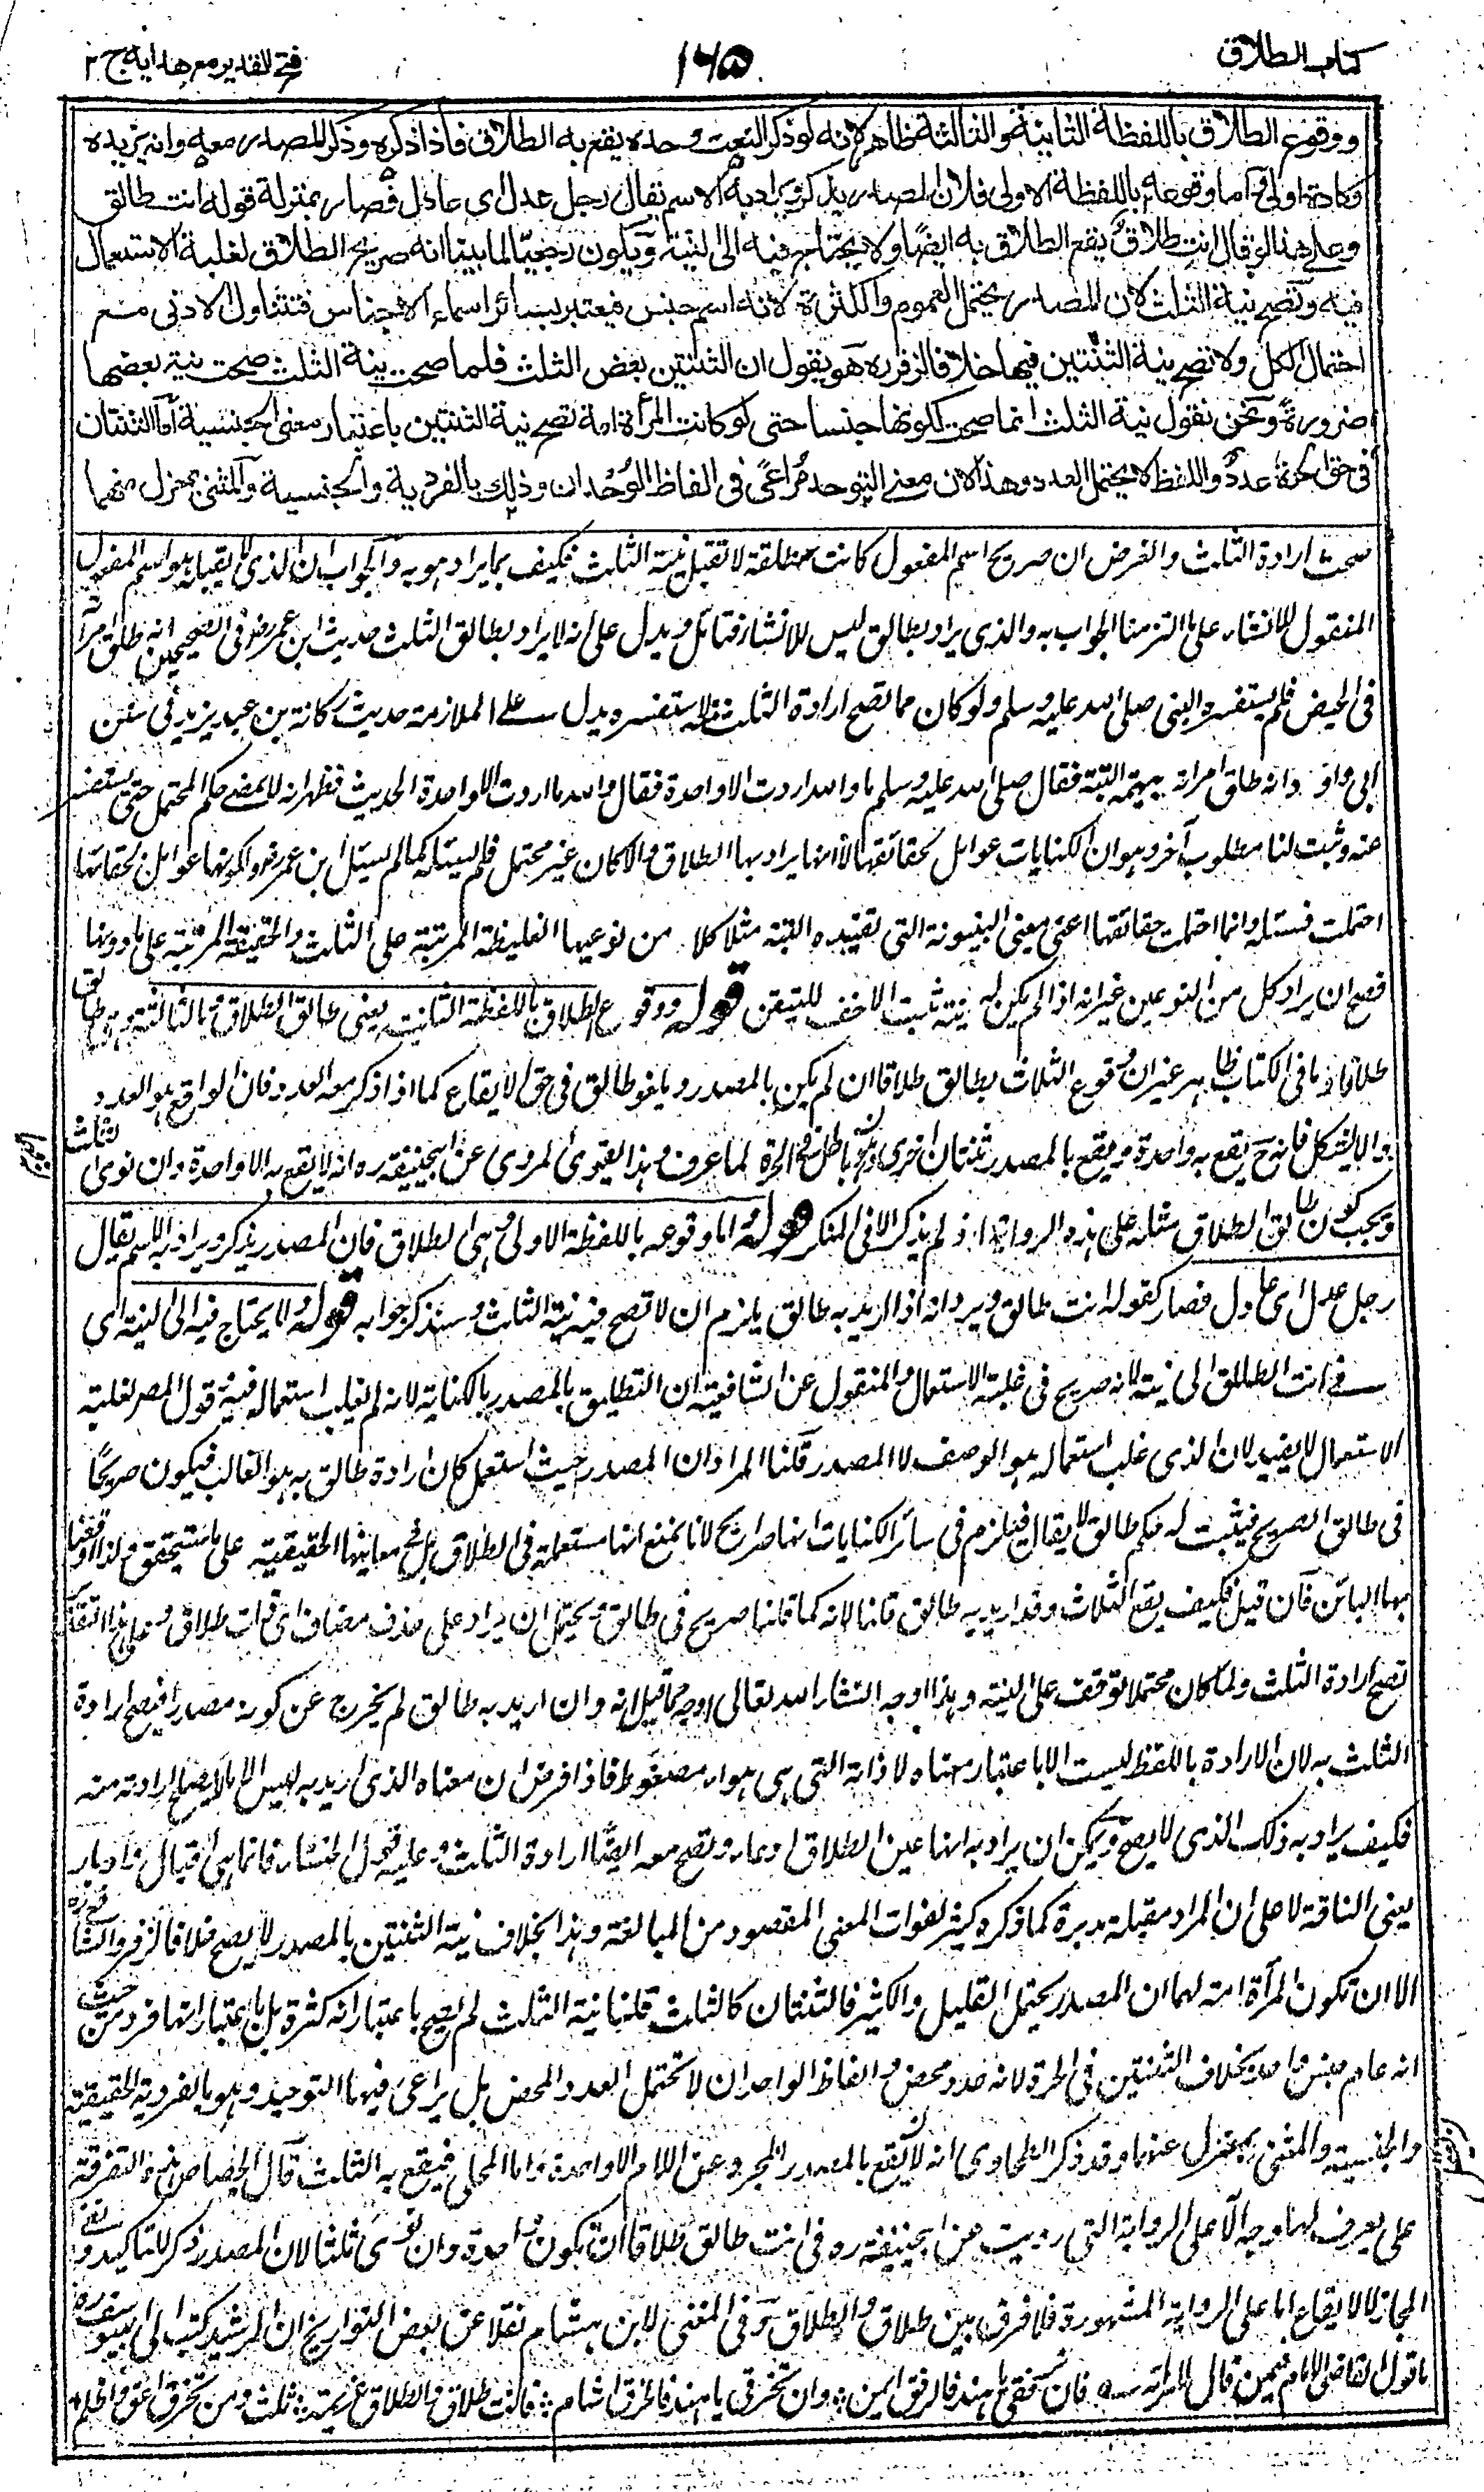 كتاب الطلاق
١٦٥
فتح القدير مع هدايه ج ٢
ووقوع الطلاق باللفظة الثانية والثالثة ظاهر لانه لو ذكر النعت وحده يقع به الطلاق فاذا ذكره وذكر المصدر معه وانه يزيده
وكادة اولى اما وقوعه باللفظة الاولى فلان المصدر يذكر ويراد به الاسم يقال رجل عدل اى عادل فصار بمنزلة قوله انت طالق
وعلى هذا لو قال انت طلاق يقع الطلاق به ايضا ولا يحتاج فيه الى النية ويكون رجعيا لما بينا انه صريح الطلاق لغلبة الاستعمال
فيه وتصح نية الثلث لان المصدر يحتمل العموم والكثرة لانه اسم جنس فيعتبر بسائر اسماء الاجناس فتتناول الادنى مع
احتمال الكل ولا تصح نية الثنتين فيها خلافا لزفر ره هو يقول ان الثنتين بعض الثلث فلما صحت نية الثلث صحت نية بعضها
ضرورة ونحن نقول نية الثلث انما صحت لكونها جنسا حتى لو كانت المرأة امة تصح نية الثنتين باعتبار معنى الجنسية اما الثنتان
فى حق الحرة عدد واللفظ لا يحتمل العدد وهذا لان معنى التوحد مراعى فى الفاظ الوحدان وذلك بالفردية والجنسية والمثنى بمعزل منهما
صحت ارادة الثلث والفرض ان صريح اسم المفعول كانت مطلقة لا تقبل نية الثلث فكيف بما يراد هو به والجواب ان الذى لا يقبله هو اسم المفعول
المنقول للانشاء على ما التزمنا الجواب به والذى يراد بطالق ليس للانشاء فتأمل ويدل على انه لا يراد بطالق الثلث حديث ابن عمر رض فى الصحيحين انه طلق امرأته
فى الحيض فلم يستفسره النبى صلى الله عليه وسلم ولو كان مما تصح ارادة الثلث به لاستفسره يدل على الملازمة حديث ركانة بن عبد يزيد فى سنن
ابى داود وانه طلق امرأته سهيمة البتة فقال صلى الله عليه وسلم ما والله اردت الا واحدة فقال والله ما اردت الا واحدة الحديث فظهر انه لا يمضى حكم المحتمل حتى يستفسر
عنه وثبت لنا مطلوب آخر وهو ان الكنايات عوامل بحقائقها لا انها يراد بها الطلاق والا كان غير محتمل فلم يسئله كما لم يسئل ابن عمر رض ولكونها عوامل بحقائقها
احتملت فسئله وانما احتملت حقائقها اعنى معنى البينونة التى تفيده البتة مثلا كلا من نوعيها الغليظة المرتبة على الثلث والخفيفة المرتبة على ما دونها
فصح ان يراد كل من النوعين غير انه اذا لم يكن له نية ثبت الاخف للتيقن قوله ووقوع الطلاق باللفظة الثانية يعنى طالق الطلاق وبالثالثة وهى طالق
طلاقا وما فى الكتاب ظاهر غير ان وقوع الثلاث بطالق طلاقا ان لم يكن بالمصدر ويلغو طالق فى حق الايقاع كما اذا ذكر معه العدد فان الواقع هو العدد
والا يشكل فانه ح يقع به واحدة ويقع بالمصدر ثنتان اخرى وهو باطل فى الحرة لما عرف وهذا يقوى المروى عن ابيحنيفة ره انه لا يقع به الا واحدة وان نوى الثلث
ويجب كون طالق الطلاق مثله على هذه الرواية اذ لم يذكر الا فى المنكر قوله واما وقوعه باللفظة الاولى وهى الطلاق فان المصدر يذكر ويراد به الاسم يقال
رجل عدل اى عادل فصار كقوله انت طالق ويرد انه اذا اريد به طالق يلزم ان لا تصح فيه نية الثلث وسنذكر جوابه قوله ولا يحتاج فيه الى النية اى
فى انت الطلاق الى نية لانه صريح فى غلبة الاستعمال والمنقول عن الشافعية ان التطليق بالمصدر بالكناية لانه لم يغلب استعماله فيه وقول المصر لغلبة
الاستعمال لا يفيد لان الذى غلب استعماله هو الوصف لا المصدر قلنا المراد ان المصدر حيث استعمل كان ارادة طالق به هو الغالب فيكون صريحا
فى طالق الصريح فيثبت له حكم طالق لا يقال فيلزم فى سائر الكنايات انها صرايح لانا نمنع انها مستعملة فى الطلاق بل فى معانيها الحقيقية على ما ستحقق ولذا اوقعنا
بها البائن فان قيل فكيف يقع الثلاث وقد اريد به طالق قلنا لانه كما قلنا صريح فى طالق ويحتمل ان يراد على حذف مضاف اى ذات طلاق وعلى هذا التقدير
تصح ارادة الثلث ولما كان محتملا توقف على النية وهذا اوجه ان شاء الله تعالى اوجه مما قيل انه وان اريد به طالق لم يخرج عن كونه مصدرا فيصح ارادة
الثلث به لان الارادة باللفظ ليست الا باعتبار معناه لا ذاته التى هى هواء مضغوط فاذا فرض ان معناه الذى اريد به ليس الا ما لا يصلح ارادته منه
فكيف يراد به ذلك الذى لا يصح ويمكن ان يراد به انها عين الطلاق ادعاء وتصح معه ايضا ارادة الثلث وعليه قول الخنساء فانما هى اقبال وادبار
يعنى الناقة لا على ان المراد مقبلة مدبرة كما ذكره كثير لفوات المعنى المقصود من المبالغة وهذا بخلاف نية الثنتين بالمصدر لا يصح خلافا لزفر والشافعى ره
الا ان تكون المرأة امة لهما ان المصدر يحتمل القليل والكثير فالثنتان كالثلث قلنا نية الثلث لم تصح باعتبار انه كثرة بل باعتبار انها فرد من حيث
انه عام جنس واحد بخلاف الثنتين فى الحرة لانه عدد محض والفاظ الوحدان لا تحتمل العدد المحض بل يراعى فيها التوحيد وهو بالفردية الحقيقية
والجنسية والمثنى بمعزل عنهما وقد ذكر الطحاوى انه لا يقع بالمصدر المجرد عن اللام الا واحدة واما المحلى فيقع به الثلث قال الجصاص هذه التفرقة
على يعرف لها وجه الا على الرواية التى رويت عن ابيحنيفة ره فى انت طالق طلاقا ان تكون واحدة وان نوى ثلثا لان المصدر ذكر للتاكيد ونفى
المجاز لا لايقاع اما على الرواية المشهورة فلا فرق بين طلاق والطلاق وفى المغنى لابن هشام نقلا عن بعض التواريخ ان الرشيد كتب الى ابى يوسف ره
ما قول القاضى الامام فيمن قال لامرأته فان ترفقى يا هند فالرفق ايمن وان تخرقى يا هند فالخرق اشام فانت طلاق والطلاق عزيمة ثلث ومن يخرق اعق واظلم